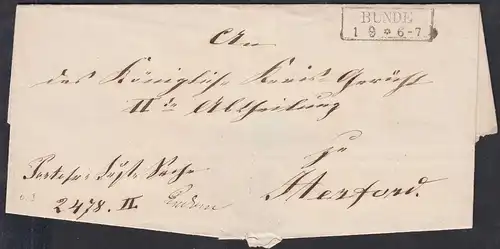 BÜNDE
1 9/9 * 6-7
An
das Königliche Kreis Gericht
II te Abtheilung
zu
Herford.
Portofr. Just. Sache
2478. II